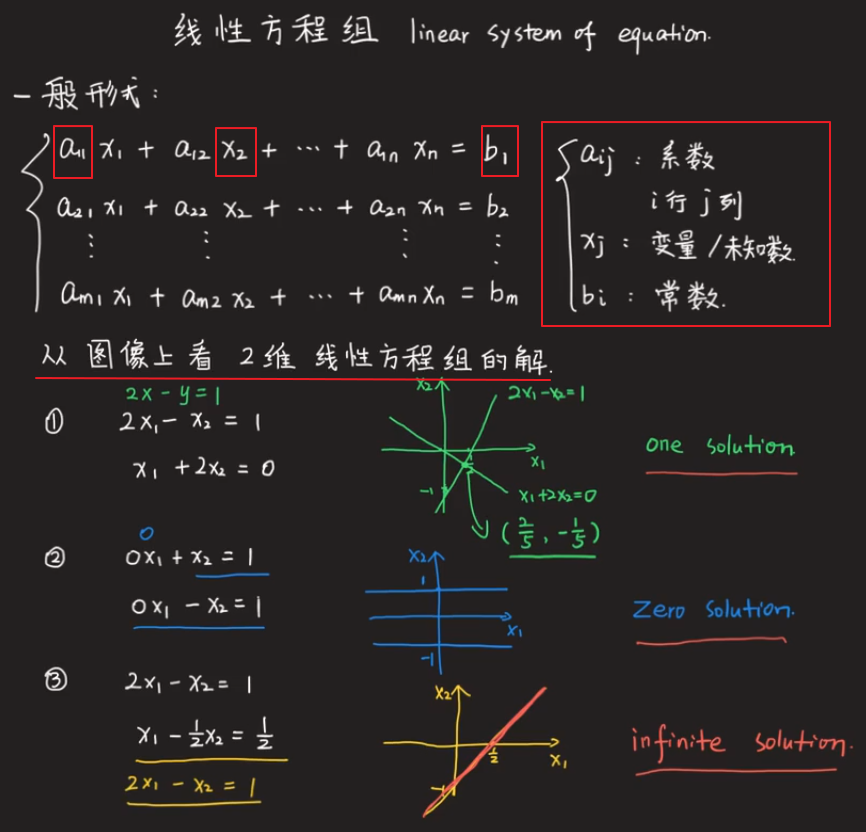 线性方程组 linear system of equation.
一般形式:
a₁₁ x₁ + a₁₂ x₂ + ⋯ + a₁ₙ xₙ = b₁
a₂₁ x₁ + a₂₂ x₂ + ⋯ + a₂ₙ xₙ = b₂
⋮ ⋮ ⋮ ⋮
aₘ₁ x₁ + aₘ₂ x₂ + ⋯ + aₘₙ xₙ = bₘ
aᵢⱼ : 系数
i行 j列
xⱼ : 变量/未知数.
bᵢ : 常数.
从图像上看 2维 线性方程组的解.
2x - y = 1
① 2x₁ - x₂ = 1
x₁ + 2x₂ = 0
x₂
2x₁-x₂=1
x₁
1/2
-1
x₁+2x₂=0
(2/5, -1/5)
one solution
0
② 0x₁ + x₂ = 1
0x₁ - x₂ = 1
x₂
1
x₁
-1
Zero solution.
③ 2x₁ - x₂ = 1
x₁ - 1/2x₂ = 1/2
2x₁ - x₂ = 1
x₂
1/2
x₁
-1
infinite solution.